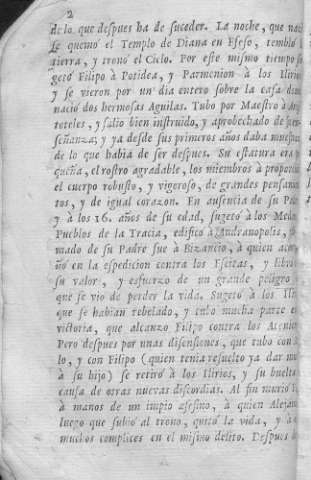 2
de lo que despues ha de suceder. La noche, que nac
se quemó el Templo de Diana en Efeso, tembló l
tierra, y tronó el Cielo. Por este mismo tiempo s
getó Filipo à Potidea, y Parmenion à los Iliri
y se vieron por un dia entero sobre la casa do
nació dos hermosas Aguilas. Tubo por Maestro à Ari
toteles, y salio bien instruido, y aprobechado de
señanza; y ya desde sus primeros años daba muestra
de lo que habia de ser despues. Su estatura era p
queña, el rostro agradable, los miembros à proporcio
el cuerpo robusto, y vigoroso, de grandes pensamie
tos, y de igual corazon. En ausencia de su Padr
y à los 16. años de su edad, sugetó à los Meda
Pueblos de la Tracia, edificó à Andranopolis,
mado de su Padre fue à Bizancio, à quien acom
ñó en la espedicion contra los Escitas, y libró
su valor, y esfuerzo de un grande peligro
que se vio de perder la vida. Sugetó à los Ili
que se habian rebelado, y tubo mucha parte e
victoria, que alcanzo Filipo contra los Atenien
Pero despues por unas disensiones, que tubo con A
lo, y con Filipo (quien tenia resuelto ya dar mu
à su hijo) se retiró à los Ilirios, y su buelta
causa de otras nuevas discordias. Al fin murió
à manos de un impio asesino, à quien Alejan
luego que subió al trono, quitó la vida, y à
muchos complices en el mismo delito. Despues